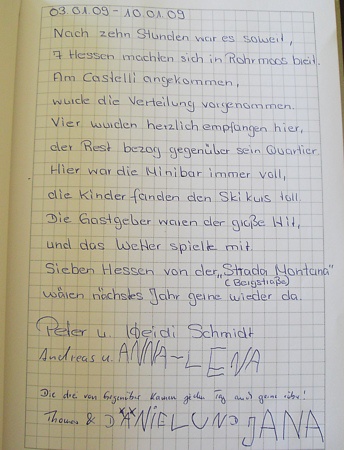 03.01.09 - 10.01.09
Nach zehn Stunden war es soweit,
7 Hessen machten sich in Rohrmoos breit.
Am Castelli angekommen,
wurde die Verteilung vorgenommen.
Vier wurden herzlich empfangen hier,
der Rest bezog gegenüber sein Quartier.
Hier war die Minibar immer voll,
die Kinder fanden den Skikurs toll.
Die Gastgeber waren der große Hit,
und das Wetter spielte mit.
Sieben Hessen von der "Strada Montana"
(Bergstraße)
wären nächstes Jahr gerne wieder da.
Peter u. Heidi Schmidt
Andreas u. ANNA-LENA
Die die von gegenüber kamen jeden Tag auch gerne rüber!
Thomas & DANIEL UND JANA